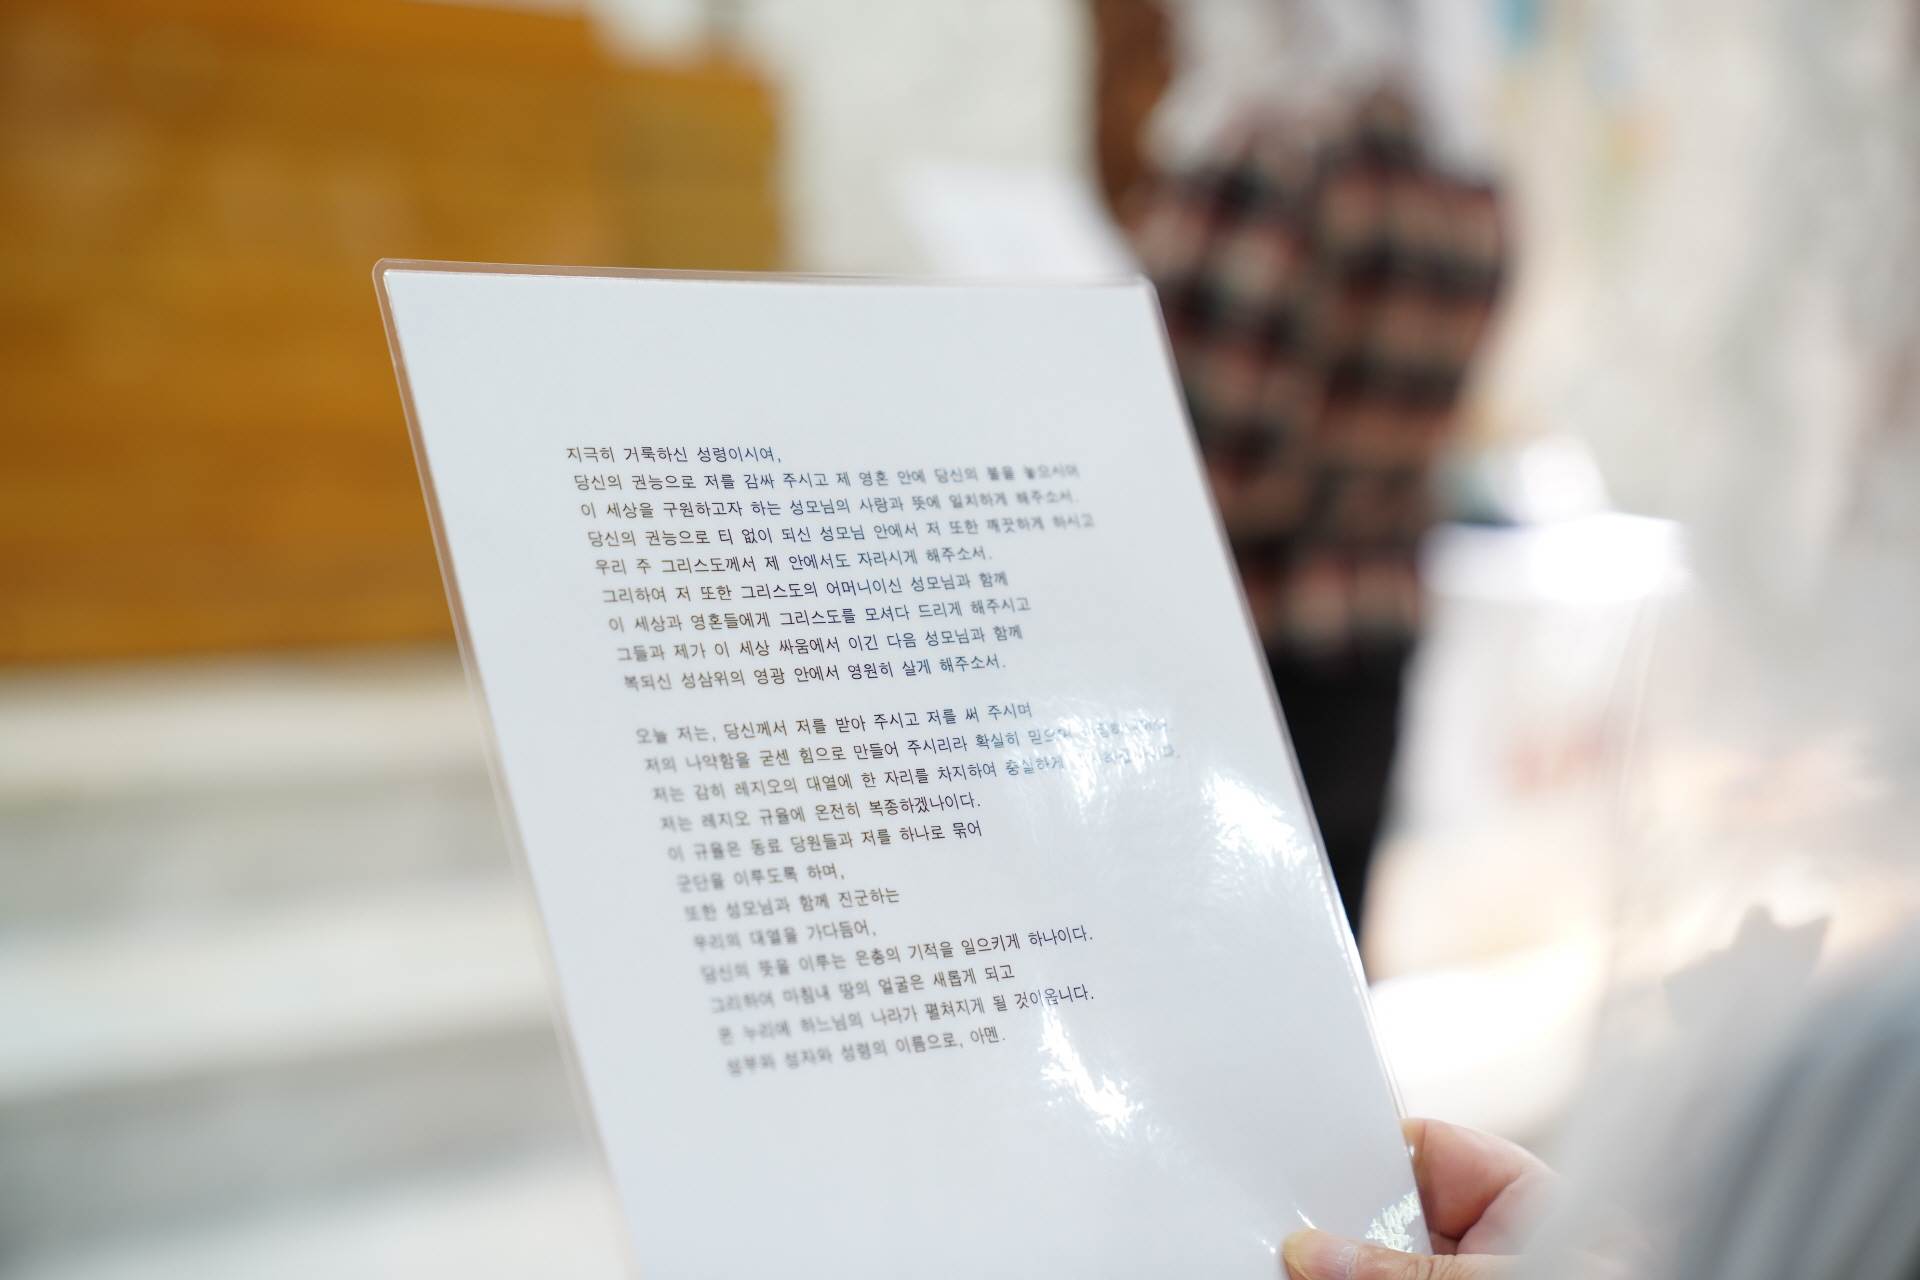 지극히 거룩하신 성령이시여,
당신의 권능으로 저를 감싸 주시고 제 영혼 안에 당신의 불을 놓으시며
이 세상을 구원하고자 하는 성모님의 사랑과 뜻에 일치하게 해주소서.
당신의 권능으로 티 없이 되신 성모님 안에서 저 또한 깨끗하게 하시고
우리 주 그리스도께서 제 안에서도 자라시게 해주소서.
그리하여 저 또한 그리스도의 어머니이신 성모님과 함께
이 세상과 영혼들에게 그리스도를 모셔다 드리게 해주시고
그들과 제가 이 세상 싸움에서 이긴 다음 성모님과 함께
복되신 성삼위의 영광 안에서 영원히 살게 해주소서.
오늘 저는, 당신께서 저를 받아 주시고 저를 써 주시며
저의 나약함을 굳센 힘으로 만들어 주시리라 확실히
저는 감히 레지오의 대열에 한 자리를 차지하여 충실하게
저는 레지오 규율에 온전히 복종하겠나이다.
이 규율은 동료 당원들과 저를 하나로 묶어
군단을 이루도록 하며,
또한 성모님과 함께 진군하는
우리의 대열을 가다듬어,
당신의 뜻을 이루는 은총의 기적을 일으키게 하나이다.
그리하여 마침내 땅의 얼굴은 새롭게 되고
온 누리에 하느님의 나라가 펼쳐지게 될 것이옵니다.
성부와 성자와 성령의 이름으로, 아멘.